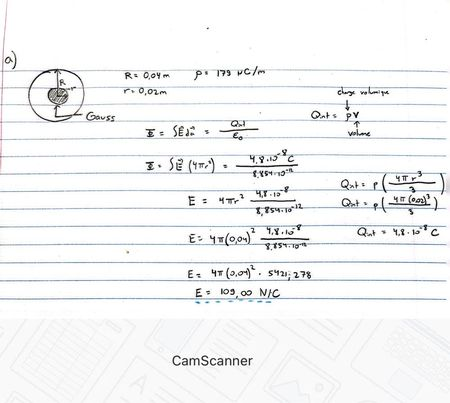 a)
R = 0,04 m ρ = 179 μC/m
r = 0,02 m
R
r
Gauss
charge volumique
Qint = ρV
volume
Φ = ∫E⃗ da⃗ = Qint / ε₀
Φ = ∫E⃗ (4πr²) = 4,8·10⁻⁸ C / 8,854·10⁻¹²
Qint = ρ (4πr³ / 3)
E = 4πr² 4,8·10⁻⁸ / 8,854·10⁻¹²
Qint = ρ (4π(0,02)³ / 3)
E = 4π(0,04)² 4,8·10⁻⁸ / 8,854·10⁻¹²
Qint = 4,8·10⁻⁸ C
E = 4π(0,04)² · 5421,278
E = 109,00 N/C
CamScanner